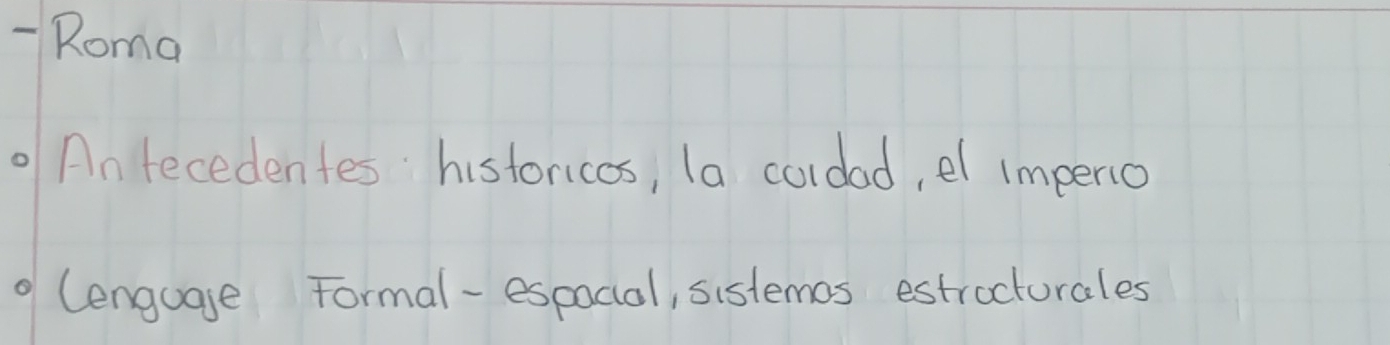 - Roma
° Antecedentes: historicos, la cuidad, el imperio
° Lenguaje Formal - espacial, sistemas estructurales